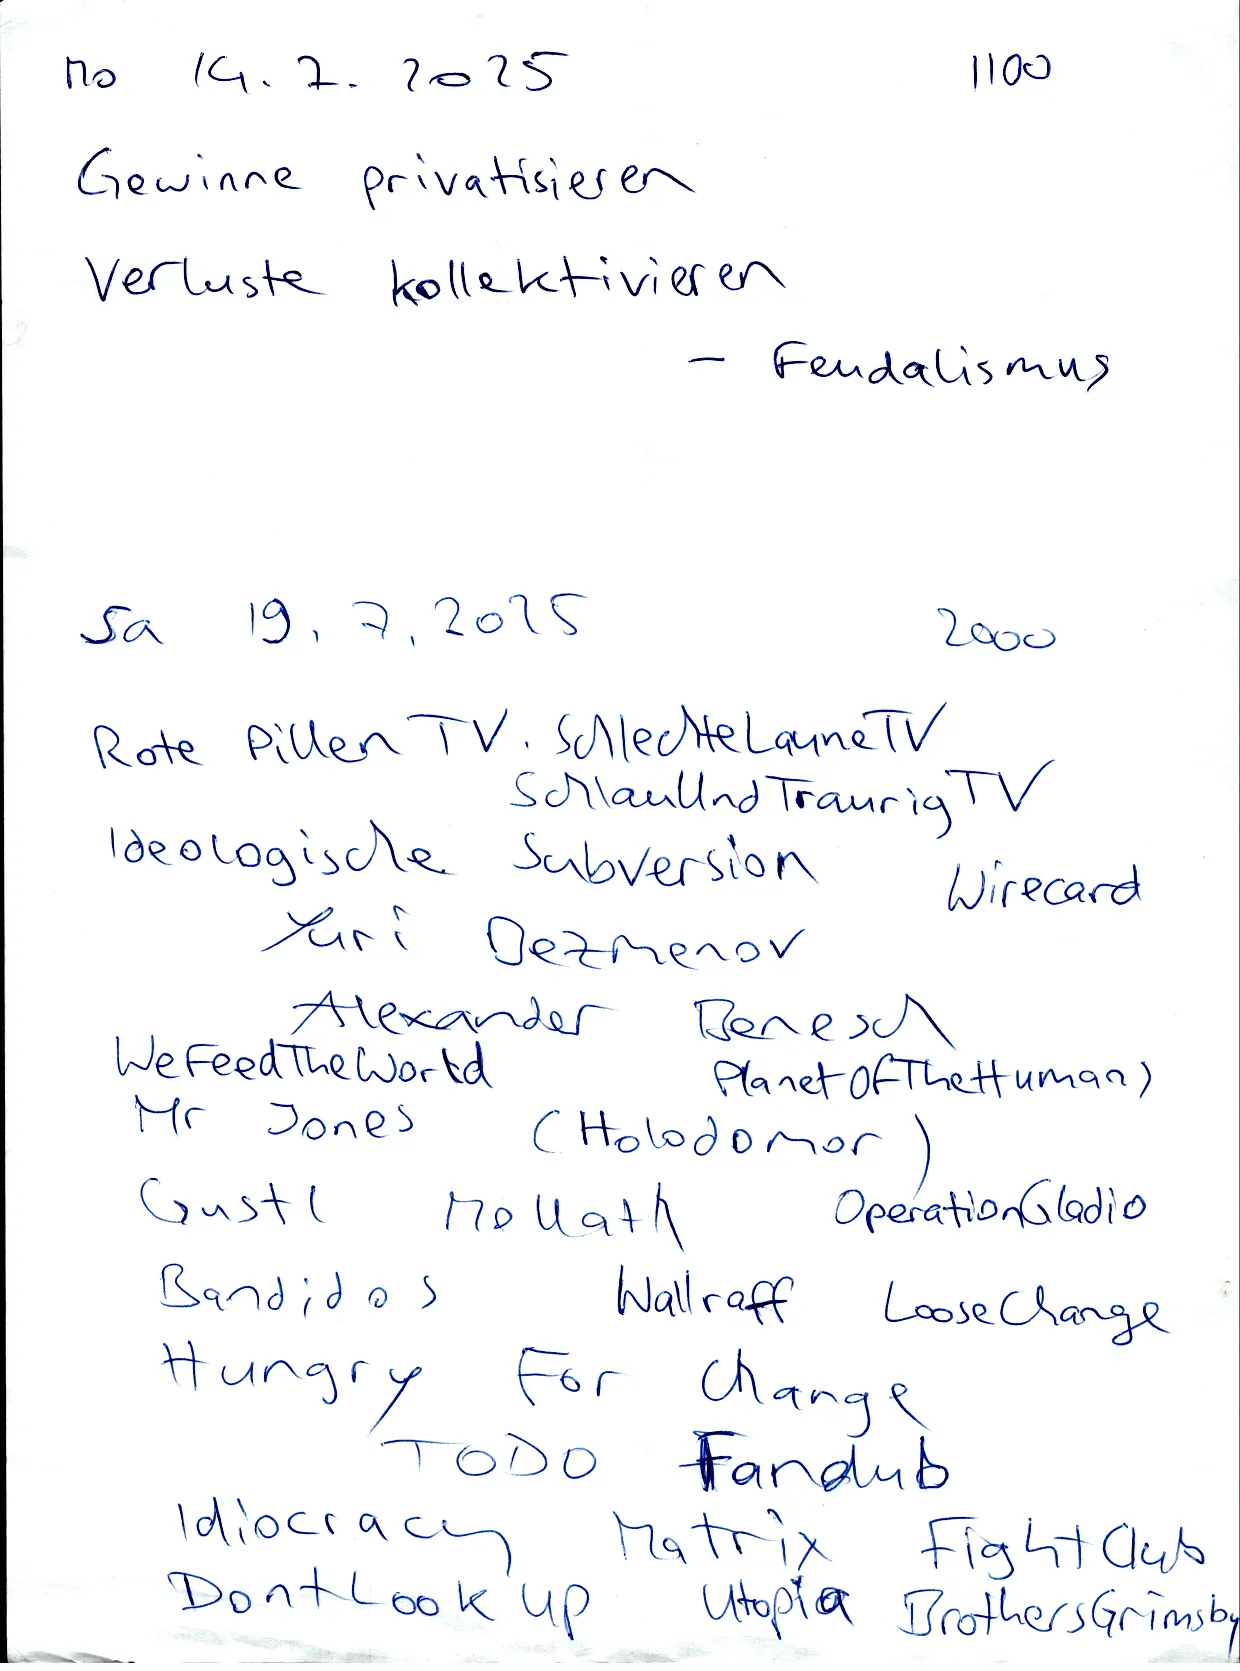 Mo 14.7.2025 1100
Gewinne privatisieren
Verluste kollektivieren
- Feudalismus
Sa 19.7.2025 2000
Rote Pillen TV. SchlechteLauneTV
SchlauUndTraurigTV
Ideologische Subversion Wirecard
Yuri Bezmenov
Alexander Benesch
WeFeedTheWorld PlanetOfTheHumans
Mr Jones (Holodomor)
Gustl Mollath OperationGladio
Bandidos Wallraff LooseChange
Hungry For Change
TODO Fandub
Idiocracy Matrix FightClub
DontLookUp Utopia BrothersGrimsby